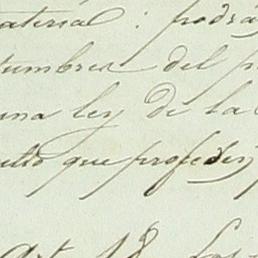 aterial : podrá
tumbres del p
una ley de la
ulto que profesen
Art. 18. Los